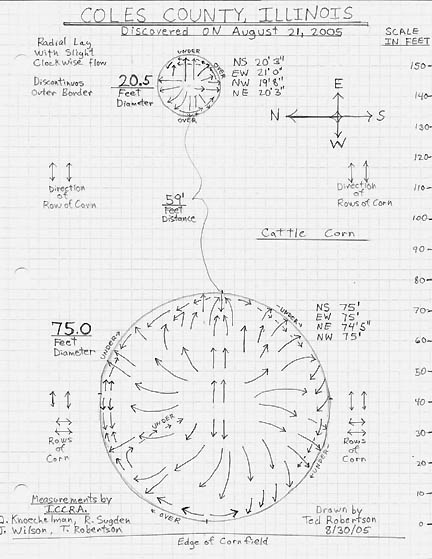 COLES COUNTY, ILLINOIS
Discovered ON August 21, 2005
SCALE
IN FEET
Radial Lay
With Slight
Clockwise flow
Discontinuos
Outer Border
20.5
Feet
Diameter
UNDER
OVER
OVER
NS 20' 3"
EW 21' 0"
NW 19' 8"
NE 20' 3"
E
N
S
W
150
140
130
120
110
100
90
80
70
60
50
40
30
20
10
0
Direction
of
Row of Corn
59'
Feet
Distance
Direction
of
Rows of Corn
Cattle Corn
75.0
Feet
Diameter
UNDER
UNDER
NS 75'
EW 75'
NE 74'5"
NW 75'
UNDER
UNDER
OVER
Rows
of
Corn
Rows
of
Corn
Measurements by
I.C.C.R.A.
D. Knoechelman, R. Sugden
J. Wilson, T. Robertson
Drawn by
Ted Robertson
8/30/05
Edge of Cornfield